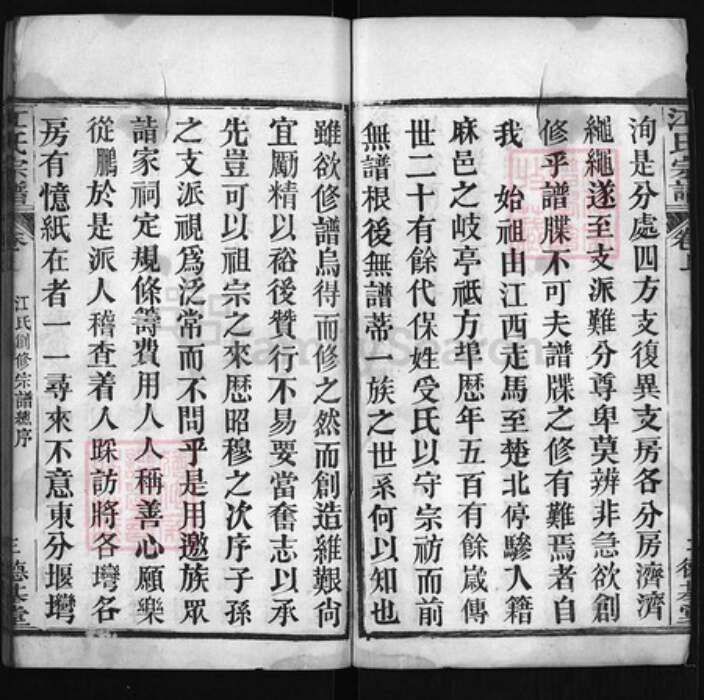 江氏宗譜
卷上
洵是分處四方支復異支房各分房濟濟
繩繩遂至支派難分尊卑莫辨非急欲創
修乎譜牒不可夫譜牒之修有難焉者自
我 始祖由江西走馬至楚北停驂入籍
麻邑之岐亭祗方埠歷年五百有餘歲傳
世二十有餘代保姓受氏以守宗祊而前
無譜根後無譜蒂一族之世系何以知也
雖欲修譜烏得而修之然而創造維艱尚
宜勵精以裕後贊行不易要當奮志以承
先豈可以祖宗之來歷昭穆之次序子孫
之支派視爲泛常而不問乎是用邀族眾
詣家祠定規條籌費用人人稱善心願樂
從鵬於是派人稽查着人踩訪將各塆各
房有憶紙在者一一尋來不意東分堰塆
江氏宗譜
江氏創修宗譜總序
三 德基堂
FamilySearch